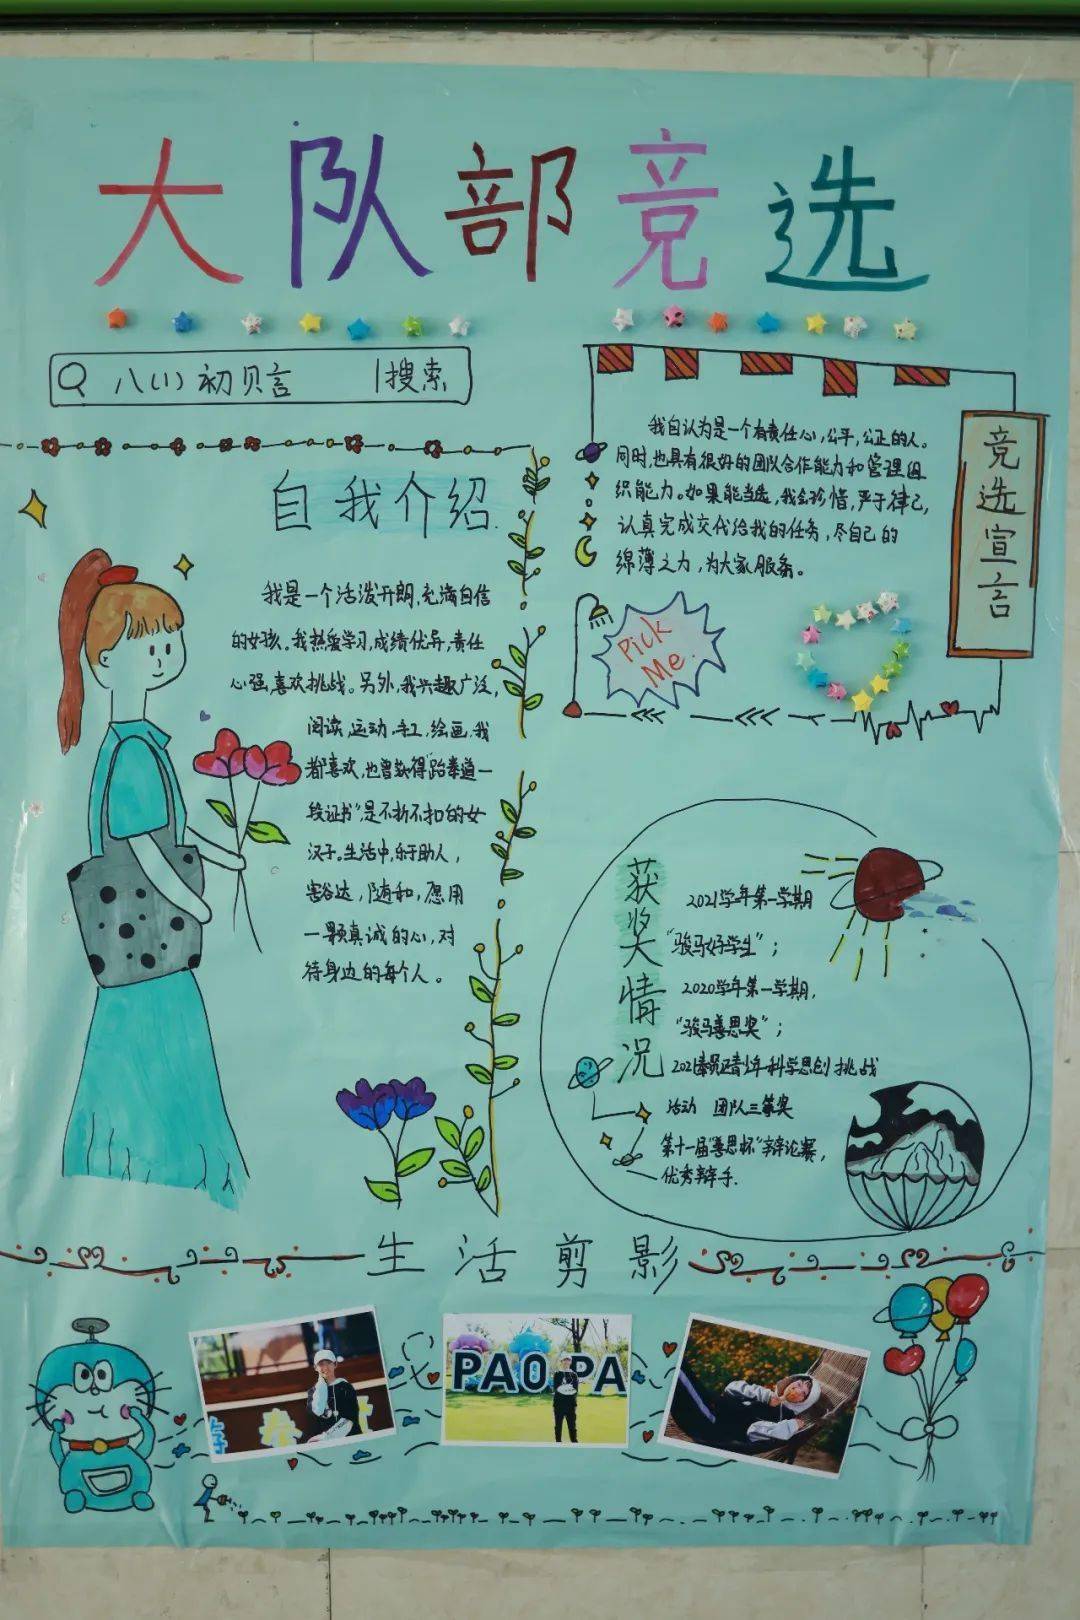 大队部竞选
八(1) 初贝言 |搜索
自我介绍
我是一个活泼开朗,充满自信
的女孩。我热爱学习,成绩优异,责任
心强,喜欢挑战。另外,我兴趣广泛,
阅读,运动,手工,绘画,我
都喜欢,也曾获得跆拳道一
段证书",是不折不扣的女
汉子。生活中,乐于助人,
豁达,随和,愿用
一颗真诚的心,对
待身边的每个人。
我自认为是一个有责任心,公平,公正的人。
同时,也具有很好的团队合作能力和管理组
织能力。如果能当选,我会珍惜,严于律己,
认真完成交代给我的任务,尽自己的
绵薄之力,为大家服务。
竞选宣言
Pick
Me.
获奖大情况
2021学年第一学期
"骏马好学生";
2020学年第一学期,
"骏马善思奖";
青少年科学思创挑战
活动 团队三等奖
第十一届"善思杯"辩论赛,
优秀辩手.
生活剪影
PAO PA